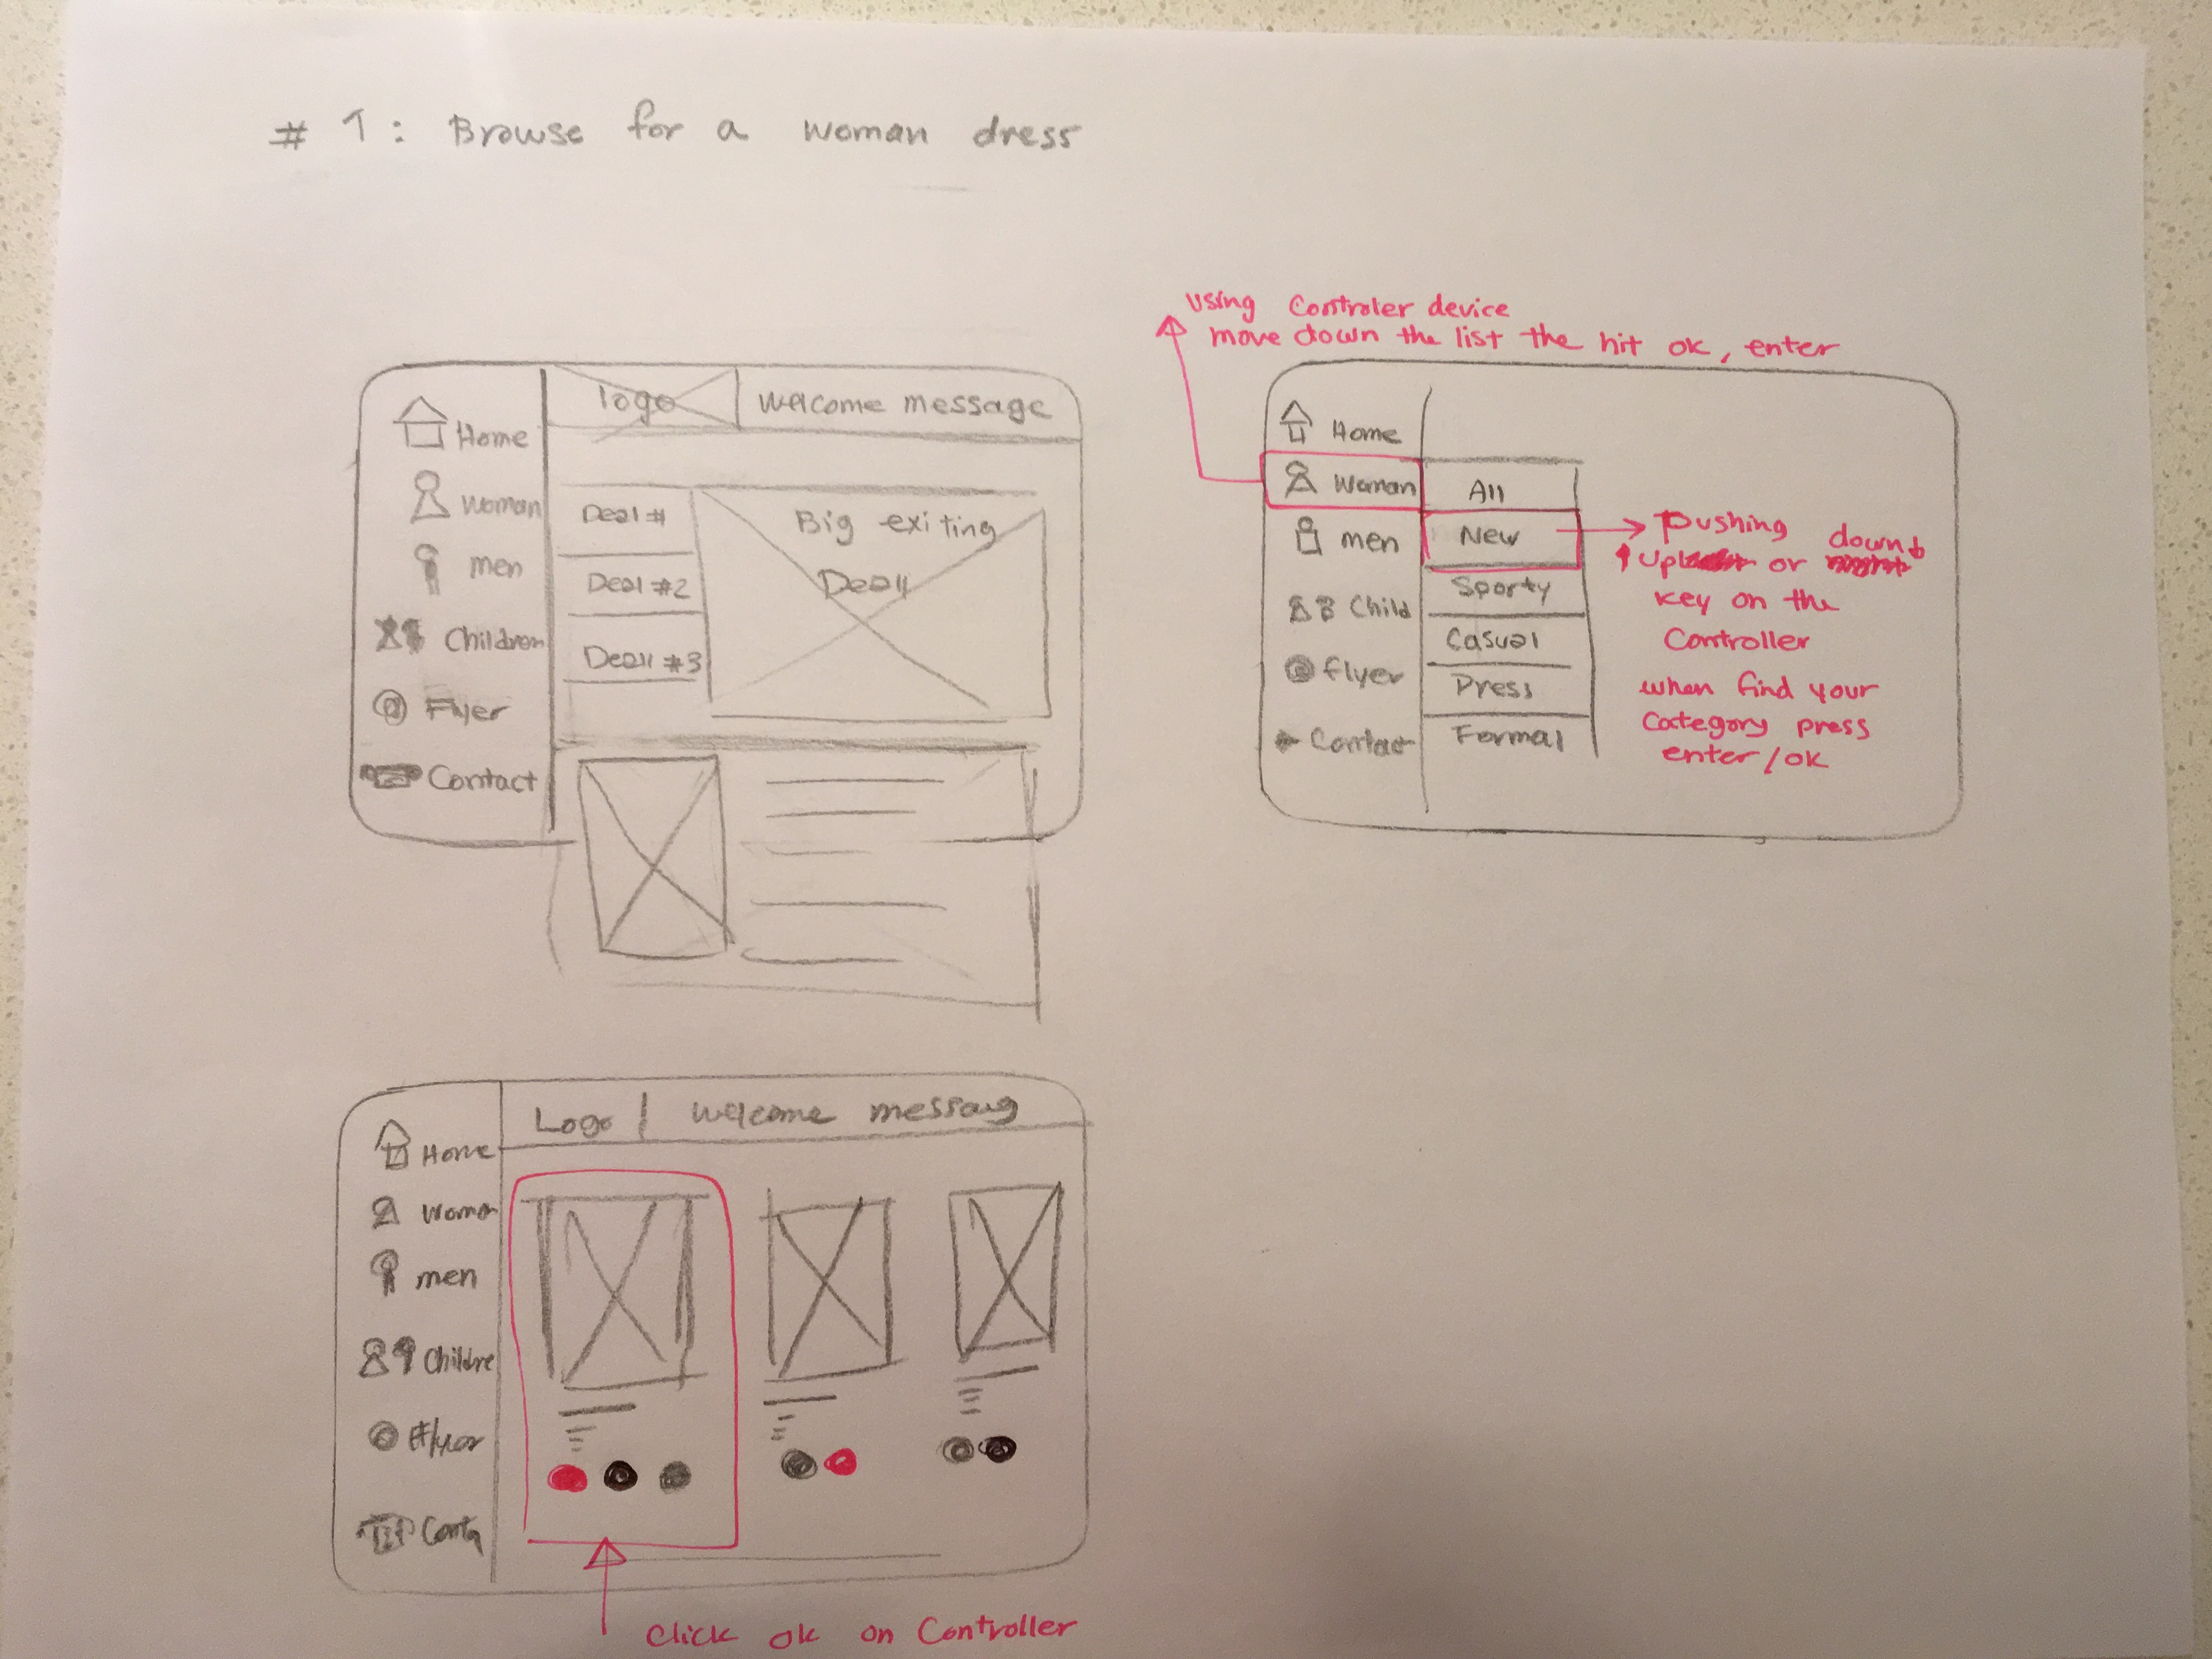 # 1: Browse for a woman dress
Home
Woman
men
Children
Flyer
Contact
logo
welcome message
Deal #
Deal #2
Deall #3
Big exiting
Deall
Using Controler device
move down the list the hit ok, enter
Home
Woman
men
Child
flyer
Contact
All
New
Sporty
Casual
Press
Formal
Pushing
up or down
key on the
Controller
when find your
Category press
enter/ok
Logo | welcome messaug
Home
Woman
men
Childre
Flyer
Conta
Click ok on Controller